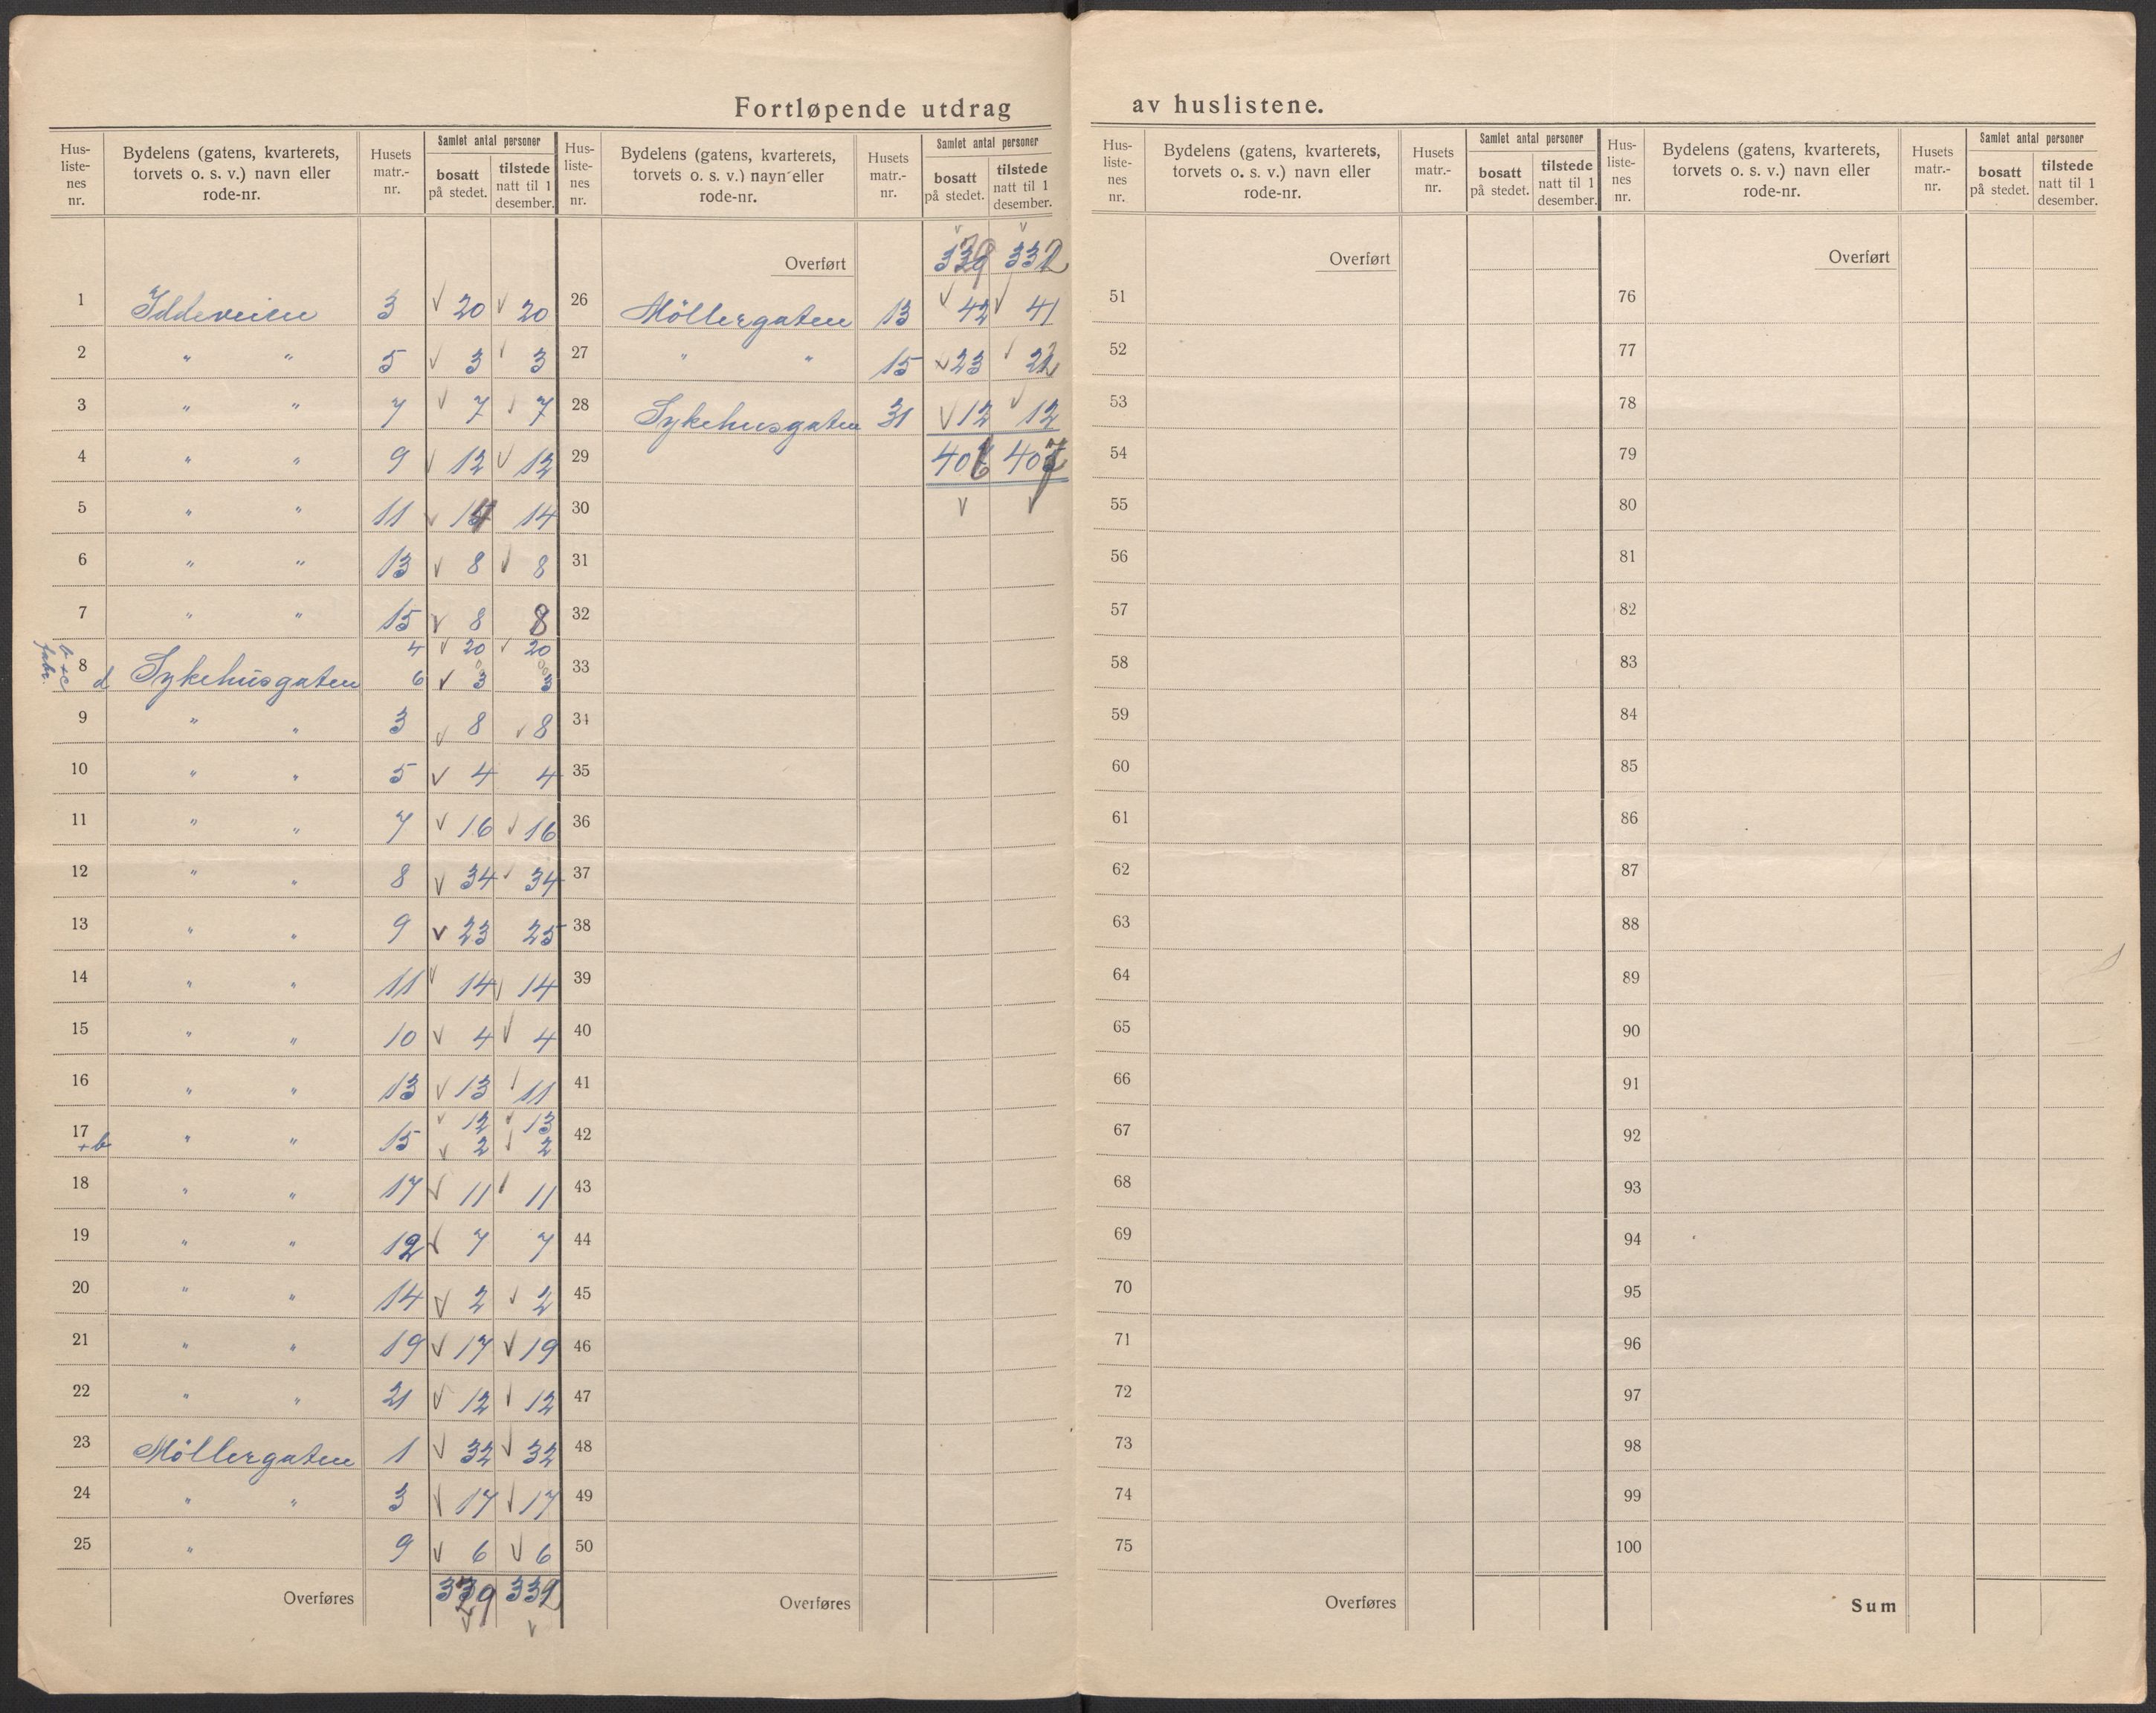 Fortløpende utdrag av huslistene.
Hus-liste-nes nr. | Bydelens (gatens, kvarterets, torvets o. s. v.) navn eller rode-nr. | Husets matr.-nr. | Samlet antal personer | bosatt på stedet. | tilstede natt til 1 desember.
1 Iddeveien 3 √ 20 √ 20
2 " " 5 √ 3 √ 3
3 " " 7 √ 7 √ 7
4 " " 9 √ 12 √ 12
5 " " 11 √ 14 14
6 " " 13 √ 8 √ 8
7 " " 15 √ 8 8
b+c fabr. 4 √ 20 √ 20
8 d Sykehusgaten 6 √ 3 3
9 " " 3 √ 8 √ 8
10 " " 5 √ 4 4
11 " " 7 √ 16 √ 16
12 " " 8 √ 34 √ 34
13 " " 9 √ 23 25
14 " " 11 √ 14 √ 14
15 " " 10 √ 4 √ 4
16 " " 13 √ 13 √ 11
√ 12 √ 13
17 +b " " 15 √ 2 √ 2
18 " " 17 √ 11 √ 11
19 " " 12 √ 7 7
20 " " 14 √ 2 √ 2
21 " " 19 √ 17 √ 19
22 " " 21 √ 12 √ 12
23 Möllergaten 1 √ 32 √ 32
24 " " 3 √ 17 √ 17
25 " 9 √ 6 √ 6
Overføres 329 332
√ √
Hus-liste-nes nr. | Bydelens (gatens, kvarterets, torvets o. s. v.) navn eller rode-nr. | Husets matr.-nr. | Samlet antal personer | bosatt på stedet. | tilstede natt til 1 desember.
Overført 329 332
26 Möllergaten 13 √ 42 √ 41
27 " " 15 √ 23 √ 22
28 Sykehusgaten 31 √ 12 √ 12
29 406 407
30 √ √
31
32
33
34
35
36
37
38
39
40
41
42
43
44
45
46
47
48
49
50
Overføres
Hus-liste-nes nr. | Bydelens (gatens, kvarterets, torvets o. s. v.) navn eller rode-nr. | Husets matr.-nr. | Samlet antal personer | bosatt på stedet. | tilstede natt til 1 desember.
Overført
51
52
53
54
55
56
57
58
59
60
61
62
63
64
65
66
67
68
69
70
71
72
73
74
75
Overføres
Hus-liste-nes nr. | Bydelens (gatens, kvarterets, torvets o. s. v.) navn eller rode-nr. | Husets matr.-nr. | Samlet antal personer | bosatt på stedet. | tilstede natt til 1 desember.
Overført
76
77
78
79
80
81
82
83
84
85
86
87
88
89
90
91
92
93
94
95
96
97
98
99
100
Sum